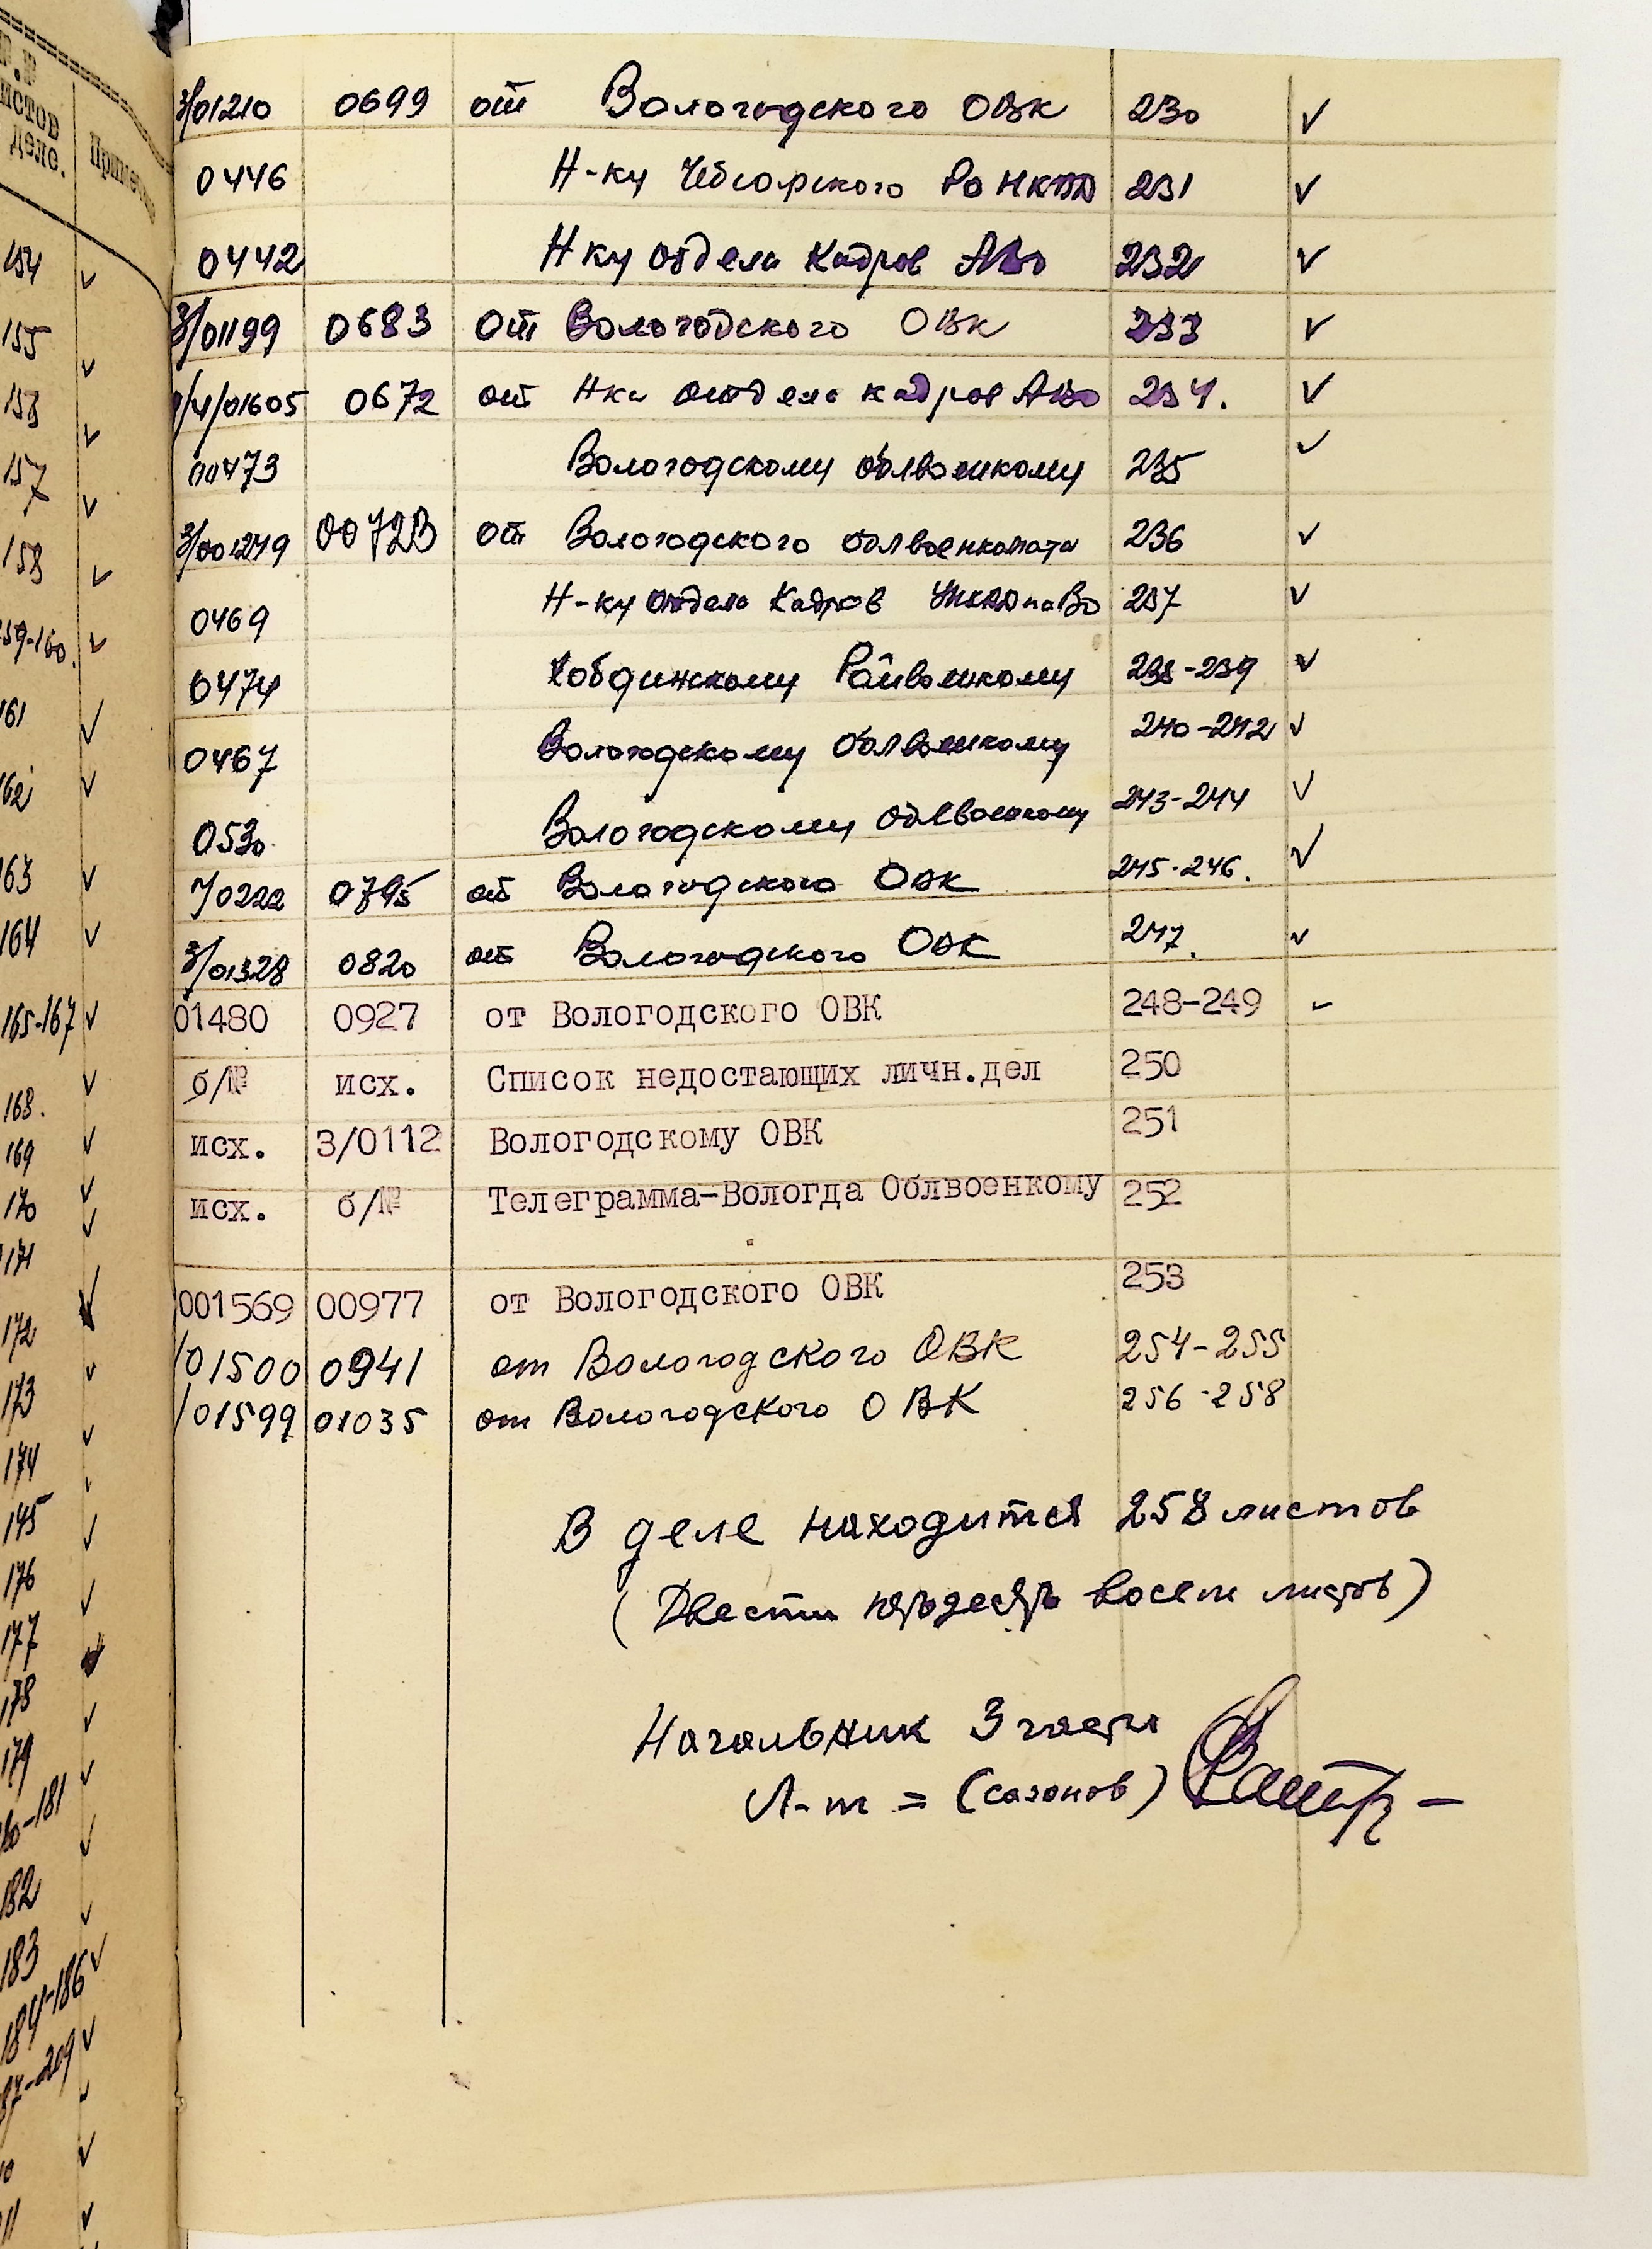 №.№
листов
деле.
Приме
154
155
157
158
159-160.
161
162
163
164
165-167
168.
169
170
171
172
173
174
175
176
177
178
179
180-181
182
183
184-186
3/01210 0699 от Вологодского ОВК 230 ✓
0446 Н-ку Чебсарского РО НКВД 231 ✓
0442 Нку Отдела Кадров АВО 232 ✓
3/01199 0683 от Вологодского ОВК 233 ✓
/4/01605 0672 от Нка отдела кадров АВО 234. ✓
00473 Вологодскому облвоенкому 235 ✓
3/001249 00723 от Вологодского облвоенкомата 236 ✓
0469 Н-ку Отдела Кадров УНКВД по ВО 237 ✓
0474 Райвоенкому 238-239 ✓
0467 Вологодскому Облвоенкому 240-242 ✓
0530 Вологодскому облвоенкому 243-244 ✓
/0222 0795 от Вологодского ОВК 245-246. ✓
3/01328 0820 от Вологодского ОВК 247. ✓
01480 0927 от Вологодского ОВК 248-249 ✓
б/№ исх. Список недостающих личн.дел 250
исх. 3/0112 Вологодскому ОВК 251
исх. б/№ Телеграмма-Вологда Облвоенкому 252
001569 00977 от Вологодского ОВК 253
/01500 0941 от Вологодского ОВК 254-255
/01599 01035 от Вологодского ОВК 256-258
В деле находится 258 листов
(Двести пятьдесят восем листов)
Начальник 3 части
Л-т = (Сазонов)